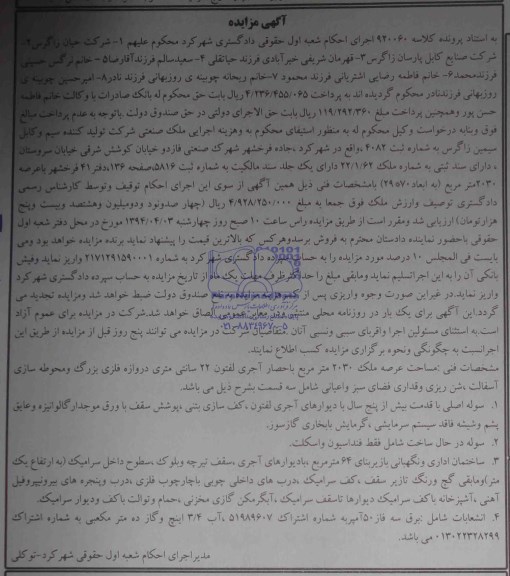 آگهی مزایده
به استناد پرونده کلاسه ۹۲۰۰۶۰ اجرای احکام شعبه اول حقوقی دادگستری شهرکرد محکوم علیهم ۱- شرکت حیان زاگرس ۲-
شرکت صنایع کابل پارسان زاگرس ۳- قهرمان شریفی خیرآبادی فرزند حیاتقلی ۴- سعید سالم فرزند آقارضا ۵- خانم نرگس حسینی
فرزند محمد ۶- خانم فاطمه رضایی اشتریانی فرزند محمود ۷- خانم ریحانه چوبینه ی روزبهانی فرزند نادر ۸- امیرحسین چوبینه ی
روزبهانی فرزند نادر محکوم گردیده اند به پرداخت ۴/۲۳۶/۴۵۵/۰۶۵ ریال بابت حق محکوم له بانک صادرات با وکالت خانم فاطمه
حسن پور وهمچنین پرداخت مبلغ ۱۱۹/۲۹۲/۳۶۰ ریال بابت حق الاجرای دولتی در حق صندوق دولت .باتوجه به عدم پرداخت مبالغ
فوق وبنابه درخواست وکیل محکوم له به منظور استیفای محکوم به وهزینه اجرایی ملک صنعتی شرکت تولید کننده سیم وکابل
سیمین زاگرس به شماره ثبت ۴۰۸۲ ،واقع در شهر کرد ،جاده فرخشهر شهرک صنعتی فازدو خیابان کوشش شرقی خیابان سروستان
، دارای سند ثبتی به شماره ملک ۲۲/۱/۶۲ دارای یک جلد سند مالکیت به شماره ثبت ۵۸۱۶،صفحه ۱۳۶،دفتر ۴۱ فرخشهر باعرصه
۲۰۳۰متر مربع (به ابعاد۷۰*۲۹) بامشخصات فنی ذیل همین آگهی از سوی این اجرای احکام توقیف وتوسط کارشناس رسمی
دادگستری توصیف وارزش ملک فوق جمعا به مبلغ ۴/۹۲۸/۲۵۰/۰۰۰ ریال (چهار صدونود ودومیلیون وهشتصد وبیست وپنج
هزارتومان) ارزیابی شد ومقرر است از طریق مزایده راس ساعت ۱۰ صبح روز چهارشنبه ۱۳۹۴/۰۴/۰۳ مورخ در محل دفتر شعبه اول
حقوقی باحضور نماینده دادستان محترم به فروش برسد وهرکس که بالاترین قیمت را پیشنهاد نماید برنده مزایده خواهد بود ومی
بایست فی المجلس ۱۰ درصد مورد مزایده را به حساب سپرده دادگستری شهر کرد به شماره ۲۱۷۱۲۹۱۵۹۰۰۰۱ واریز نماید وفیش
بانکی آن را به این اجرا تسلیم نماید ومابقی مبلغ را حداکثر ظرف مهلت یک ماه از تاریخ مزایده به حساب سپرده دادگستری شهر کرد
واریز نماید.در غیراین صورت وجوه واریزی پس از کسر هزینه مزایده به نفع صندوق دولت ضبط خواهد شد ومزایده تجدید می
گردد.این آگهی برای یک بار در روزنامه محلی منتشر ودر معابر عمومی الصاق خواهد شد,شرکت در مزایده برای عموم آزاد
است.به استثنای مسئولین اجرا واقربای سببی ونسبی آنان .متقاضیان شرکت در مزایده می توانند پنج روز قبل از مزایده از طریق این
اجرانسبت به چگونگی ونحوه برگزاری مزایده کسب اطلاع نمایند.
مشخصات فنی :مساحت عرصه ملک ۲۰۳۰ متر مربع باحصار آجری لفتون ۲۲ سانتی متری دروازه فلزی بزرگ ومحوطه سازی
آسفالت ،شن ریزی وقداری فضای سبز واعیانی شامل سه قسمت بشرح ذیل می باشد.
۱. سوله اصلی با قدمت بیش از پنج سال با دیوارهای آجری لفتون ،کف سازی بتنی ،پوشش سقف با ورق موجدارگالوانیزه وعایق
پشم وشیشه فاقد سیستم سرمایشی ،گرمایش بابخاری گازسوز.
۲. سوله در حال ساخت شامل فقط فنداسیون واسکلت.
۳. ساختمان اداری ونگهبانی بازیربنای ۶۴ مترمربع ،بادیوارهای آجری ،سقف تیرچه وبلوک ،سطوح داخل سرامیک (به ارتفاع یک
متر)ومابقی گچ ورنگ تازیر سقف ،کف سرامیک ،درب های داخلی چوبی باچارچوب فلزی ،درب وپنجره های بیرونیپروفیل
آهنی ،آشپزخانه باکف سرامیک دیوارها تاسقف سرامیک ،آبگرمکن گازی مخزنی ،حمام وتوالت باکف ودیوار سرامیک.
۴. انشعابات شامل :برق سه فاز۵۰آمپربه شماره اشتراک ۵۱۹۸۹۶۰۷ ،آب ۳/۴ اینچ وگاز ده متر مکعبی به شماره اشتراک
۰۱۳۰۲۲۳۲۸۲۹۹ می باشد.
مدیراجرای احکام شعبه اول حقوقی شهرکرد-توکلی